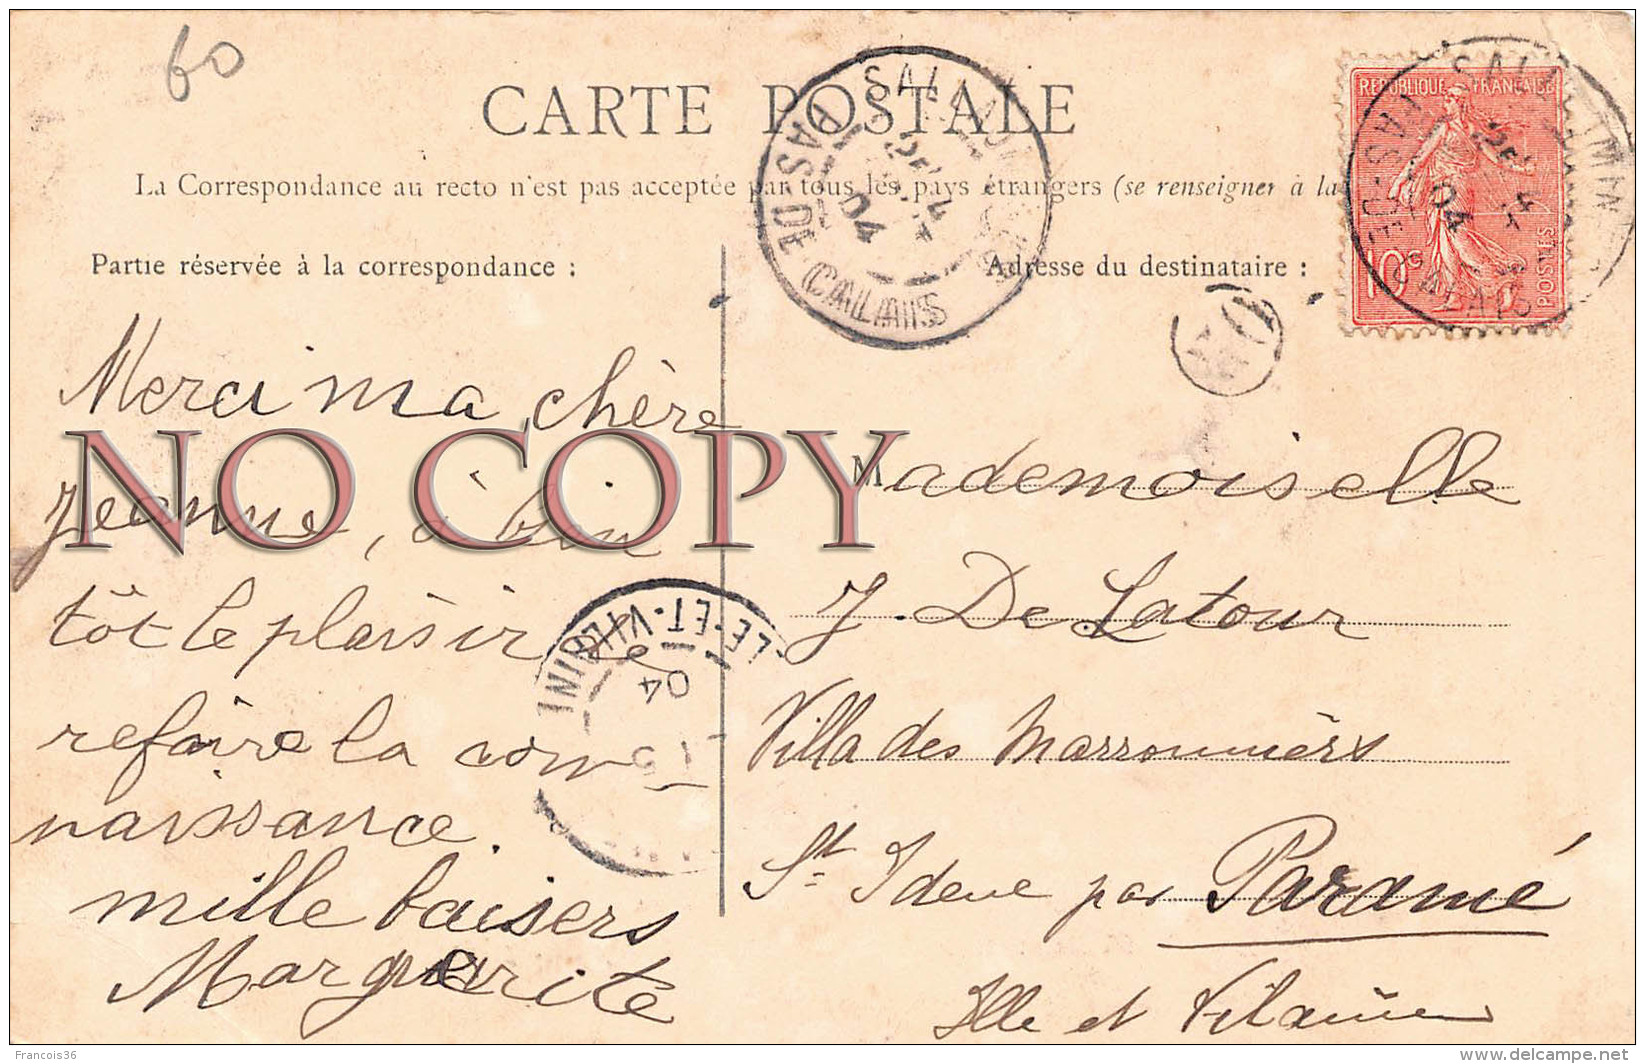 60
CARTE POSTALE
La Correspondance au recto n'est pas acceptée par tous les pays étrangers (se renseigner à la
RÉPUBLIQUE FRANÇAISE
10c
POSTES
SALLAUMINES
PAS-DE-CALAIS
04
Partie réservée à la correspondance :
Adresse du destinataire :
Merci ma chère
Jeanne, à bien
tôt le plaisir de
refaire la con-
naissance.
mille baisers
Marguerite
Mademoiselle
J. De Latour
Villa des Marronniers
St Ideuc par Paramé
Ille et Vilaine
ILLE-ET-VILAINE
04
NO COPY
Francois36
www.delcampe.net